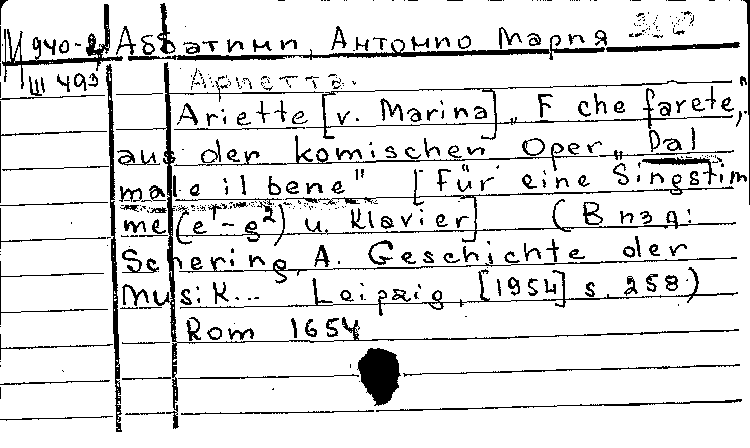 И 940-2, Аббатини, Антонио Мария
Ш 493 Ариетта.
Ariette [v. Marina] „E che farete,"
aus der komischen Oper „Dal
male il bene" [Für eine Singstim
me (e¹-g²) u. Klavier] (В изд:
Schering, A. Geschichte der
Musik... Leipzig, [1954] s. 258.)
Rom 1654